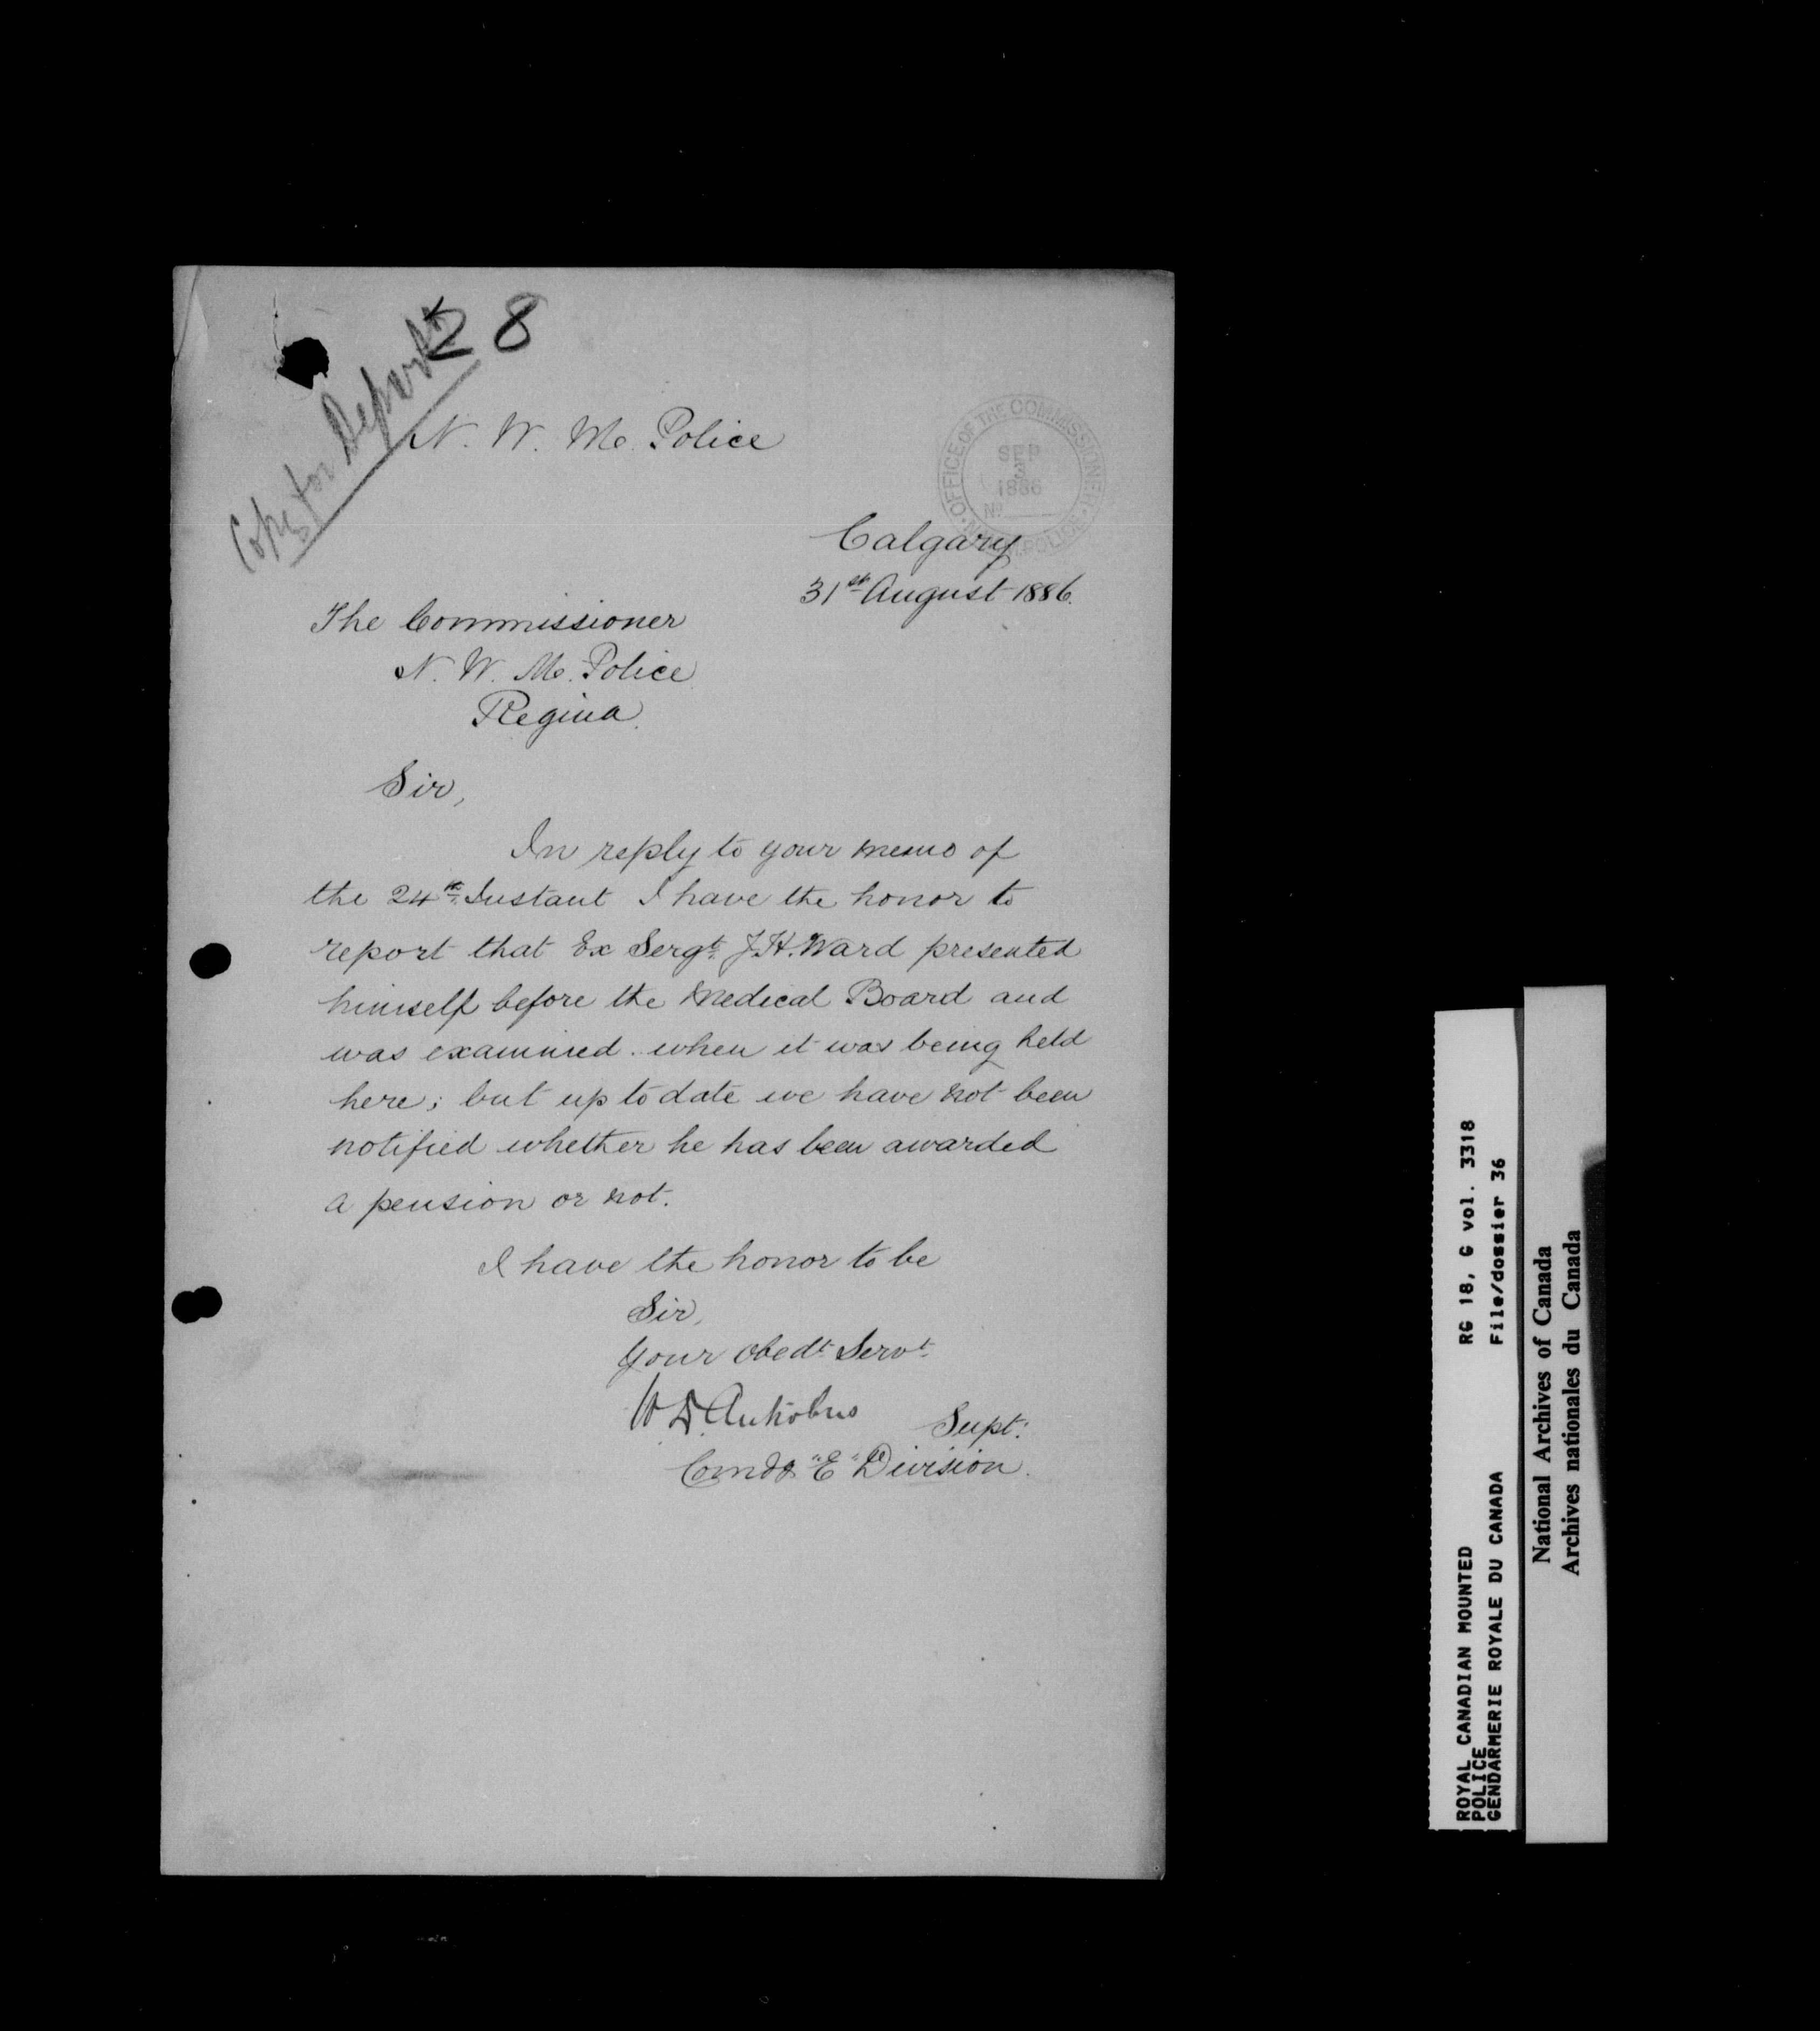 28
Copy for Depart^t
N. W. M. Police
OFFICE OF THE COMMISSIONER
SEP
3
1886
No
N.W.M. POLICE
Calgary
31st August 1886.
The Commissioner
N. W. M. Police
Regina.
Sir,
In reply to your memo of
the 24th Instant I have the honor to
report that Ex Sergt. J.H. Ward presented
himself before the Medical Board and
was examined. when it was being held
here; but up to date we have not been
notified whether he has been awarded
a pension or not.
I have the honor to be
Sir,
Your Obedt Servt
W D. Antrobus Supt:
Comdg "E" Division.
ROYAL CANADIAN MOUNTED
POLICE
GENDARMERIE ROYALE DU CANADA
RG 18, G vol. 3318
File/dossier 36
National Archives of Canada
Archives nationales du Canada